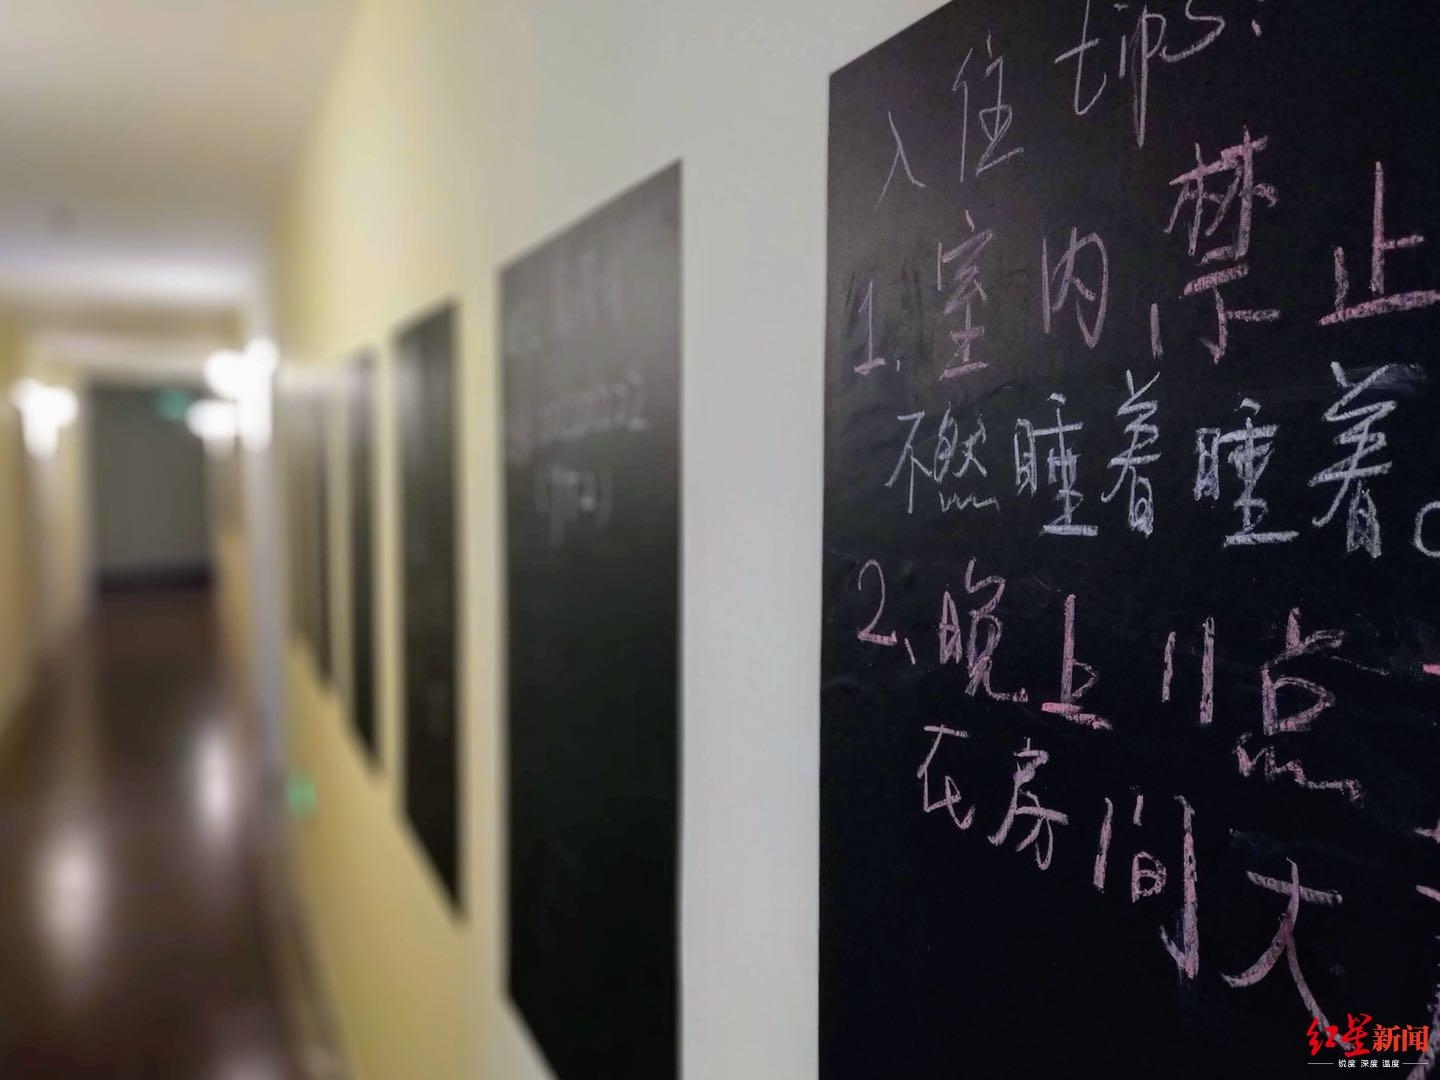 入住tips:
1.室内禁止
不然睡着睡着
2、晚上11点
在房间大
红星新闻
锐度 深度 温度